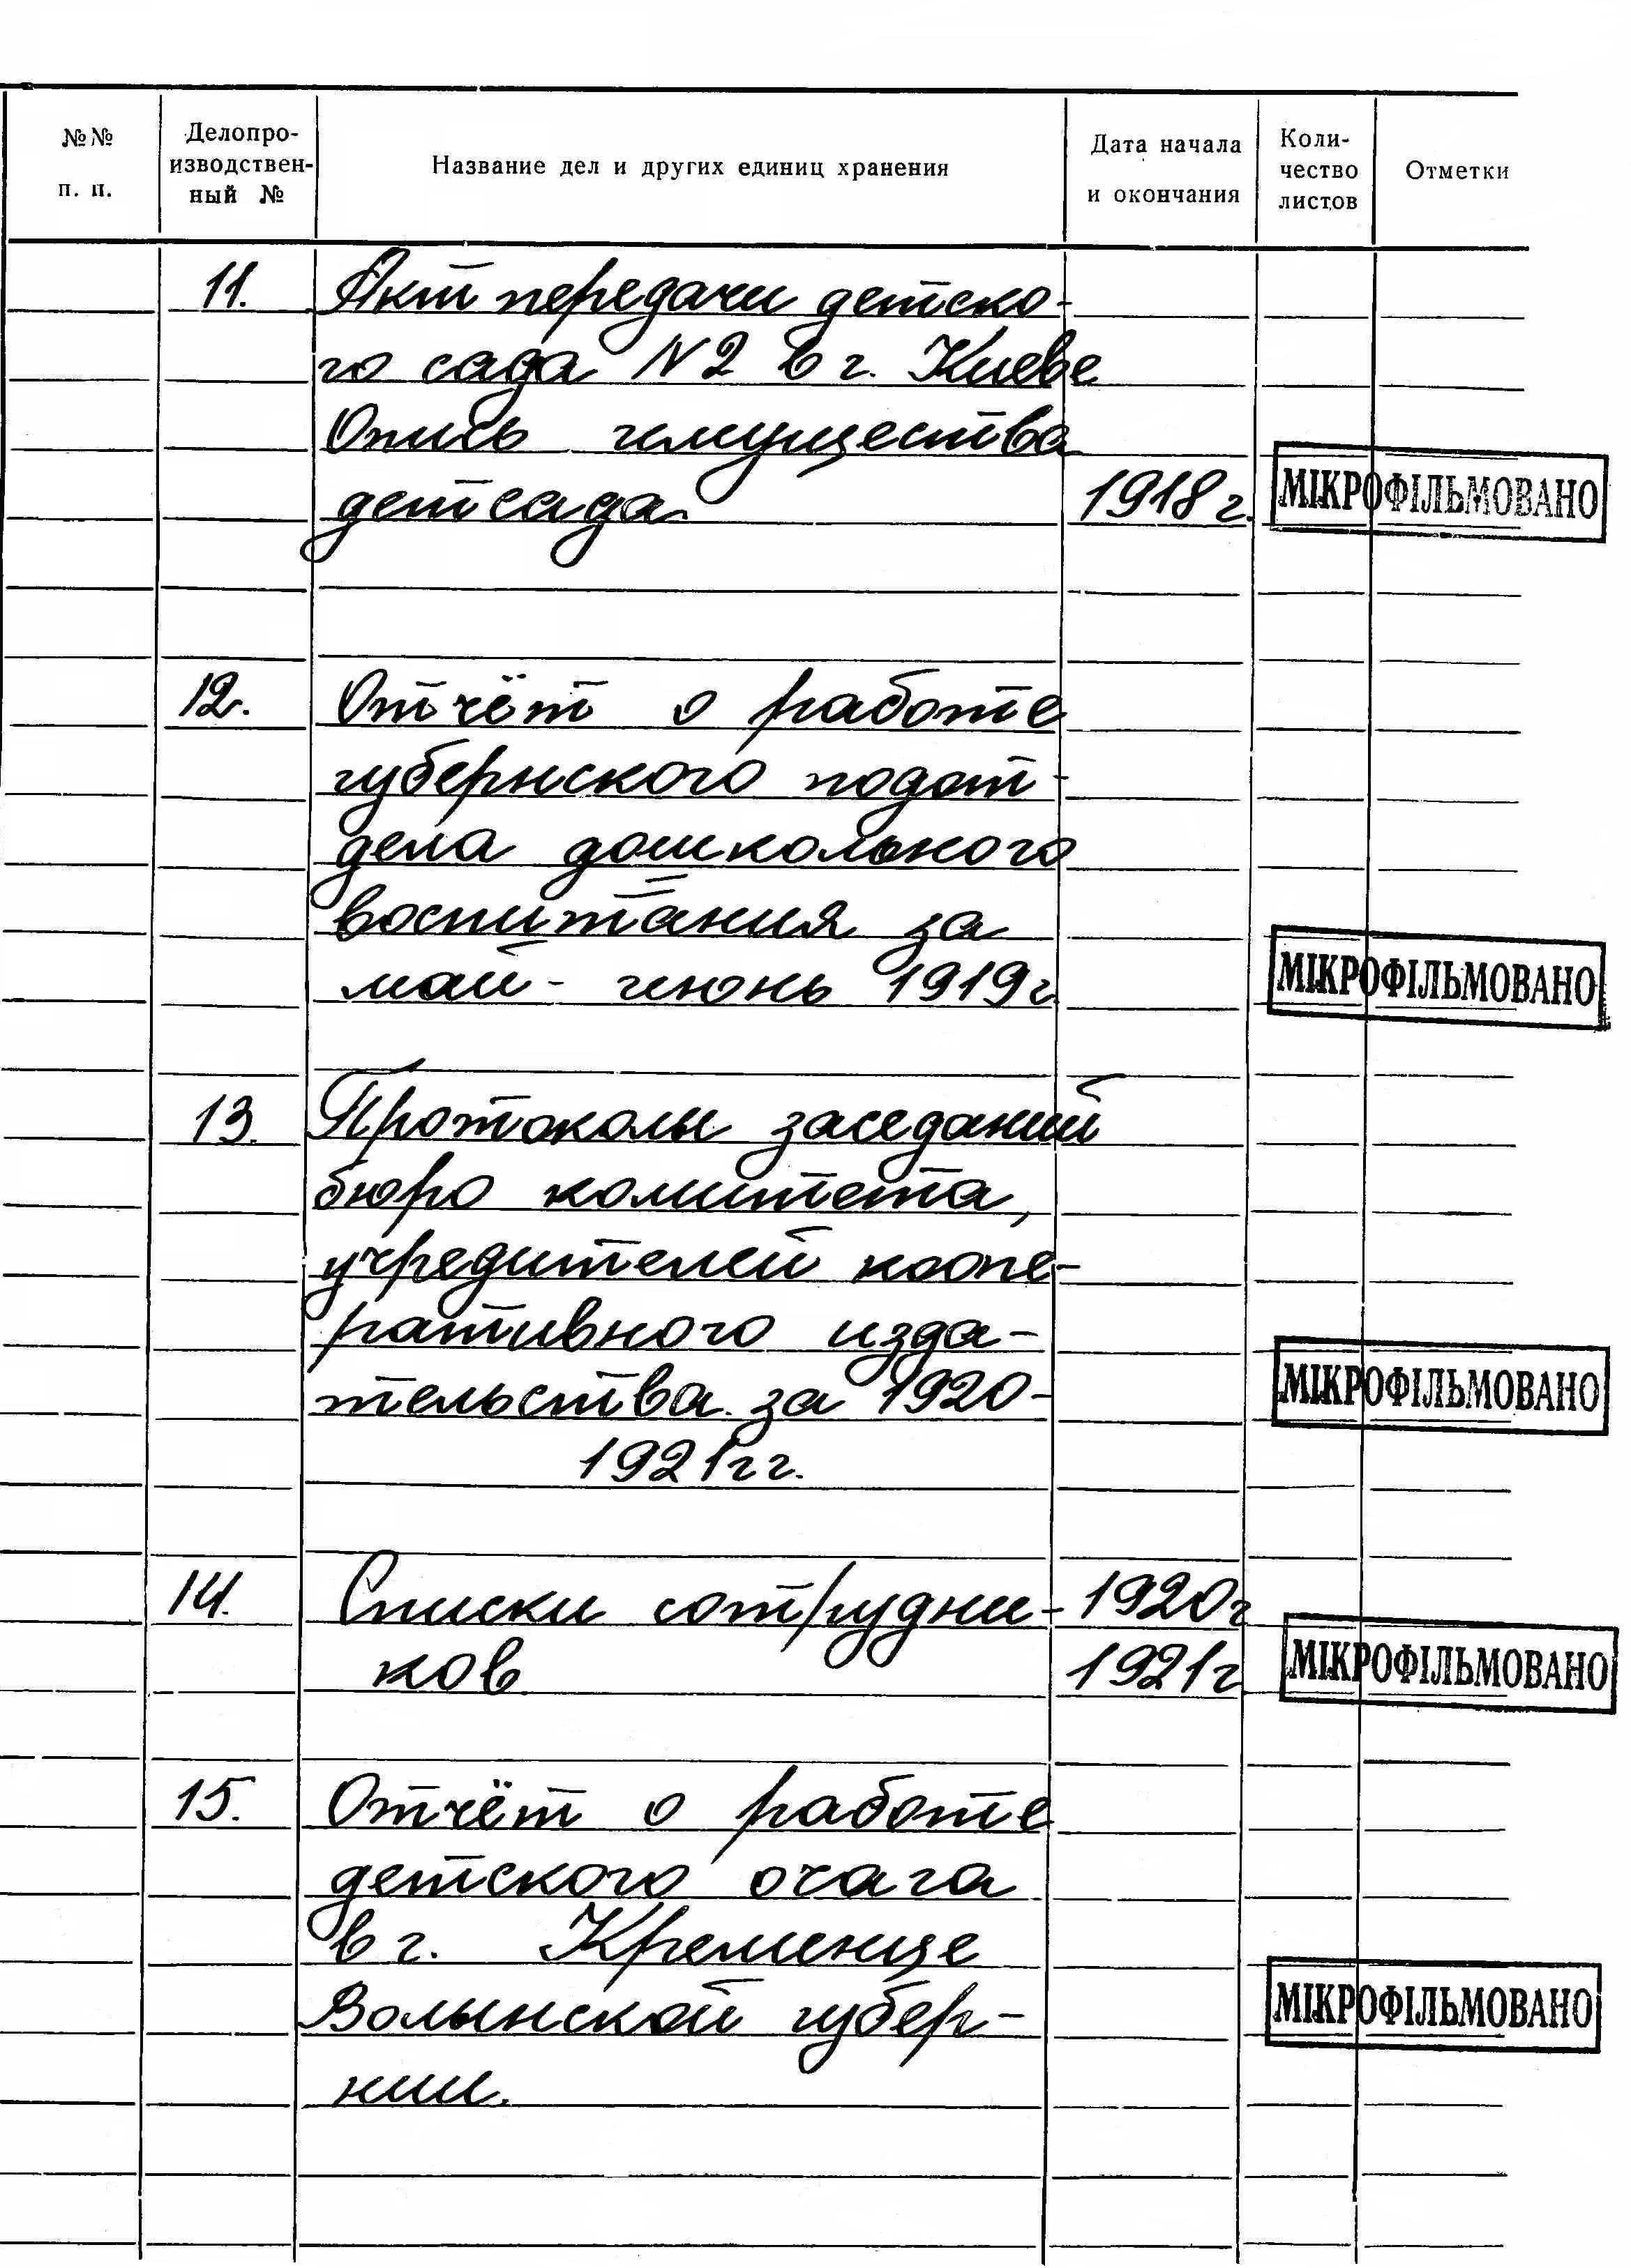 №№ п. п.
Делопро-
изводствен-
ный №
Название дел и других единиц хранения
Дата начала
и окончания
Коли-
чество
листов
Отметки
11. Акт передачи детско-
го сада N2 в г. Киеве
Опись имущества
детсада. 1918 г. МІКРОФІЛЬМОВАНО
12. Отчёт о работе
губернского подот-
дела дошкольного
воспитания за
май - июнь 1919 г МІКРОФІЛЬМОВАНО
13. Протоколы заседаний
бюро комитета,
учредителей коопе-
ративного изда-
тельства за 1920- МІКРОФІЛЬМОВАНО
1921 гг.
14. Списки сотрудни- 1920 г
ков 1921 г МІКРОФІЛЬМОВАНО
15. Отчёт о работе
детского очага
в г. Кременце
Волынской губер- МІКРОФІЛЬМОВАНО
нии.